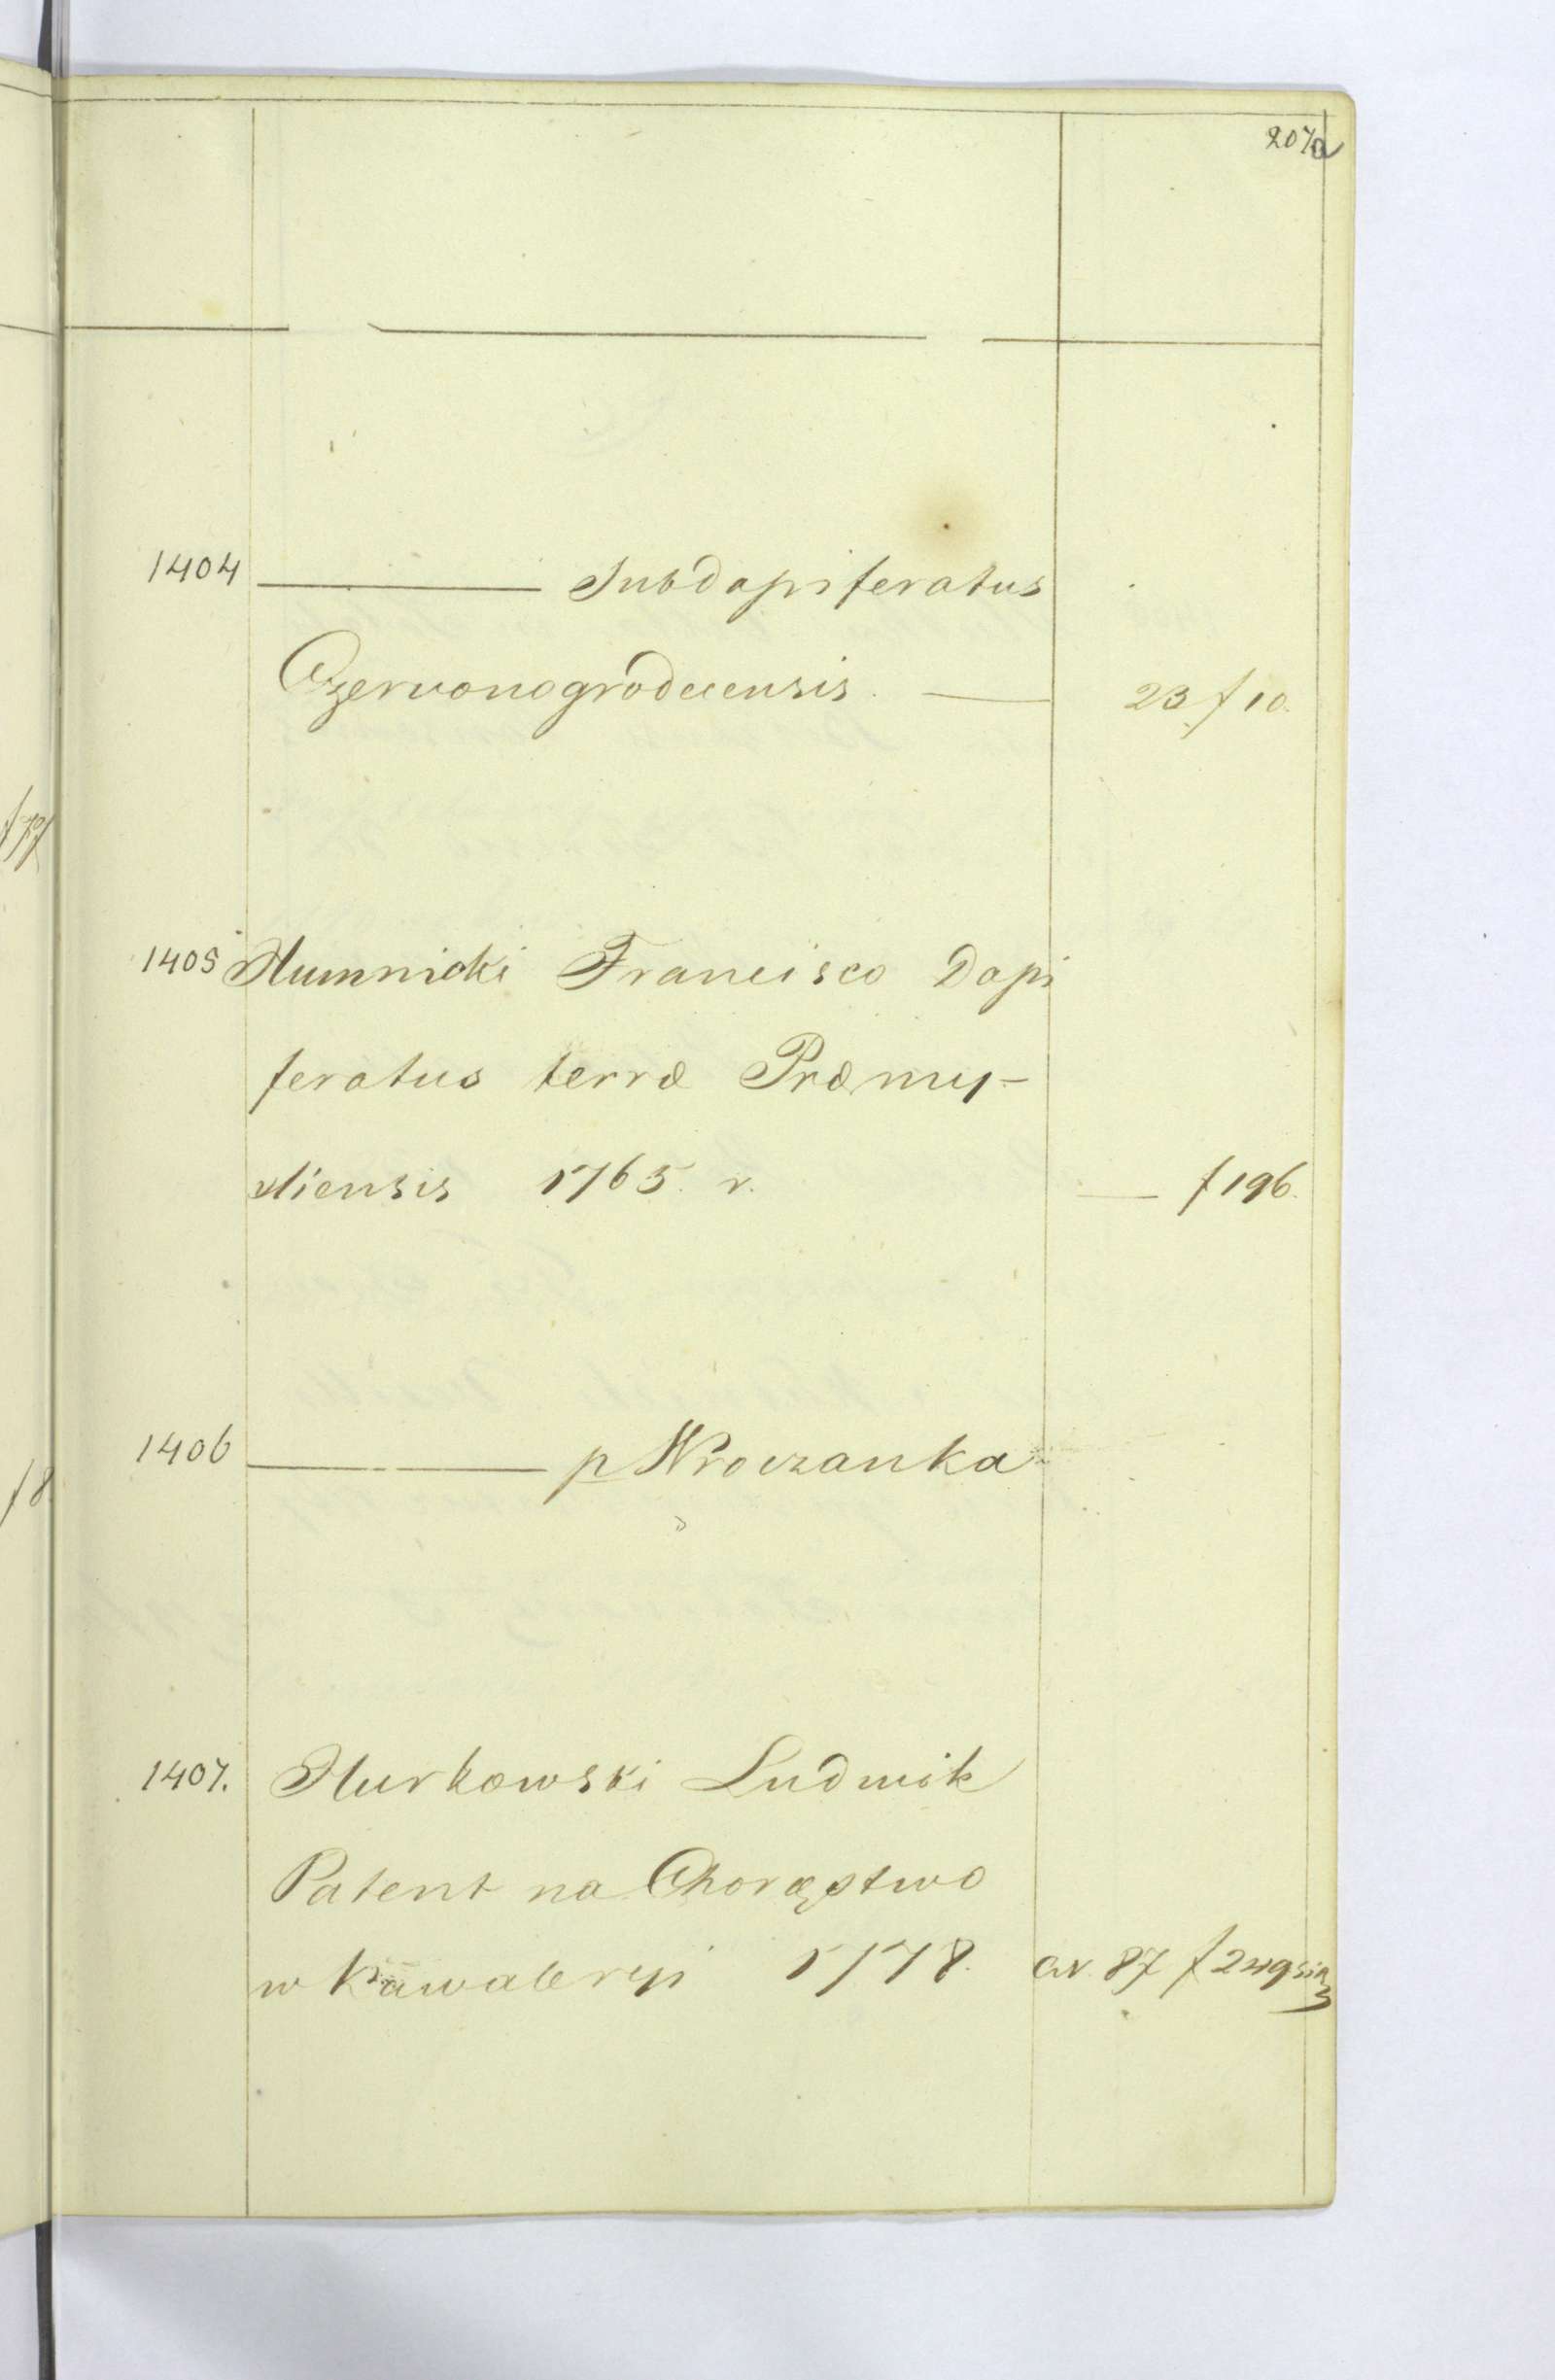 207a
1404 ——— Subdapiferatus
Czerwonogrodecensis. — 23 f 10.
1405 Humnicki Francisco Dapi
feratus terræ Præmy-
sliensis 1765. r. — f 196.
1406 ——— p Wroczanka
1407. Hurkowski Ludwik
Patent na Chorąstwo
w Kawaleryi 1778. av. 87 f